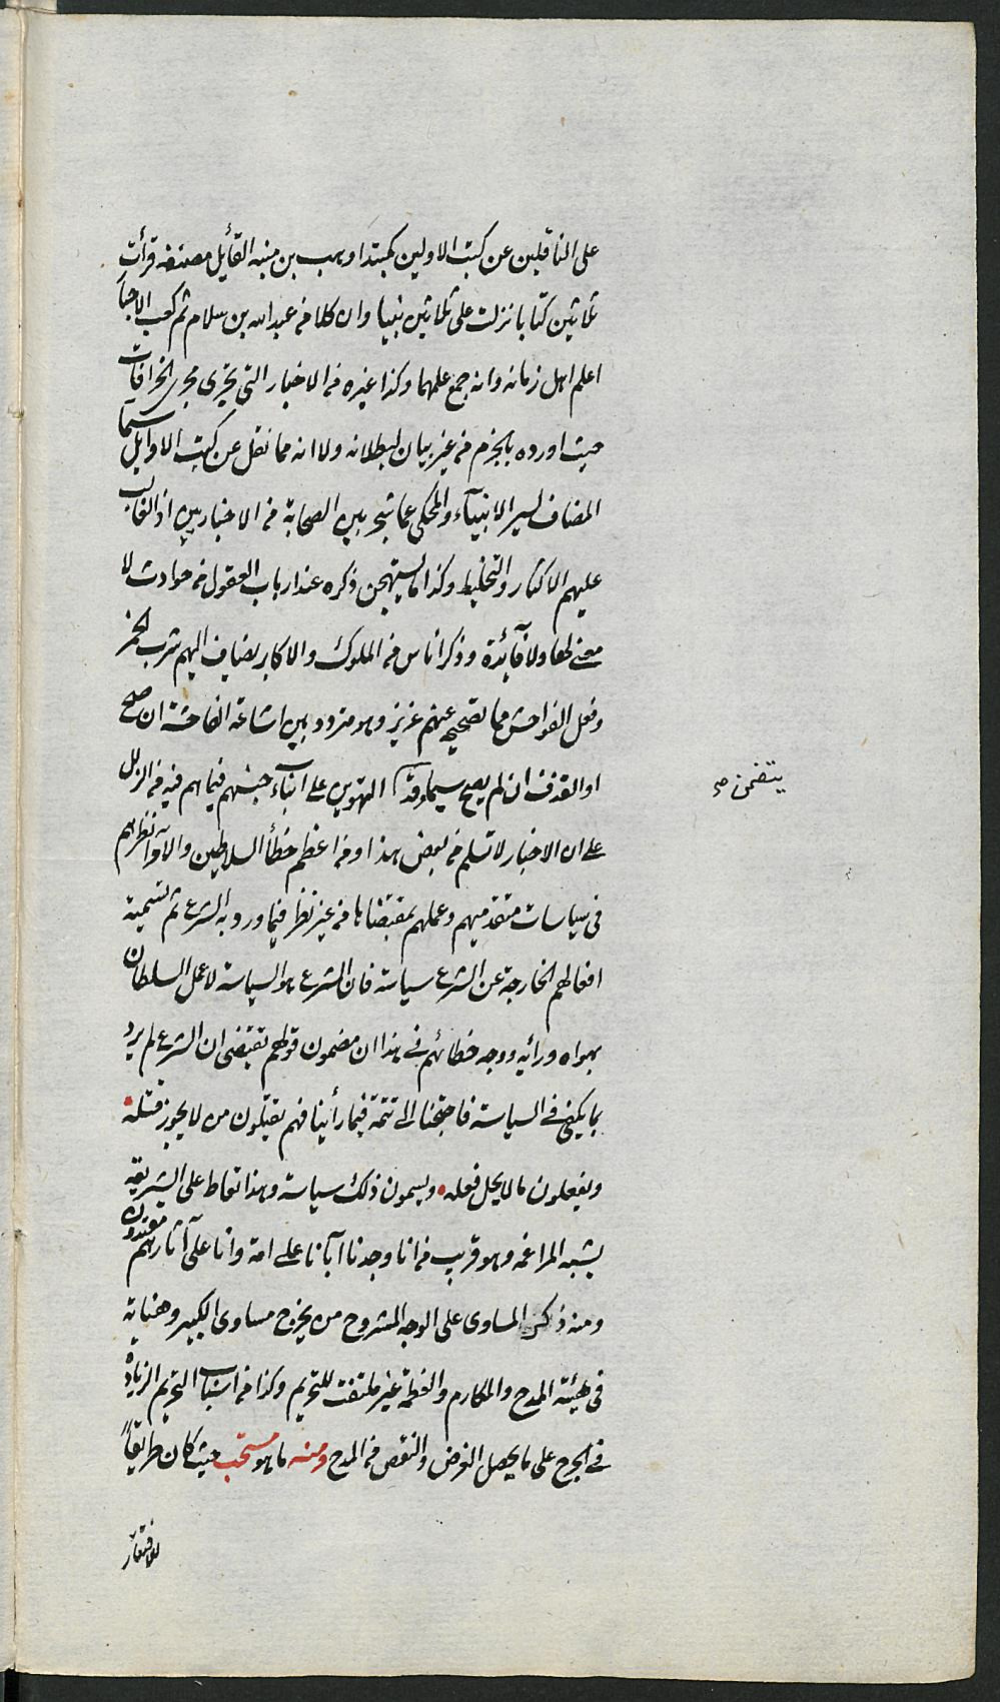 على الناقلين عن كتب الاولين كمبتدا وهب بن منبه القائل مصنفه قرأت
ثلاثين كتابا نزلت على ثلاثين نبيا وان كلا من عبد الله بن سلام ثم كعب الاحبار
اعلم اهل زمانه وانه جمع علمهما وكذا غيره من الاخبار التي تجرى مجرى الخرافات
حيث اورده بالجزم من غير بيان لبطلانه ولا انه مما نقل عن كتب الاوايل سيما
المضاف لسير الانبيآء والمحكى عما شجر بين الصحابة من الاخباريين اذ الغالب
عليهم الاكثار والتخليط وكذا ما يستهجن ذكره عند ارباب العقول من حوادث لا
معنى لها ولا فآئدة وذكر اناس من الملوك والاكابر يضاف اليهم شرب الخمر
وفعل الفواحش مما تصحيحه عنهم عزيز وهو متردد بين اشاعة الفاحشة ان صح
او القذف ان لم يصح سيما وقد التهوين على ابناء جنسهم فيما هم فيه من الزلل
يتضمن صح
على ان الاخبار لا تسلم من بعض هذا ومن اعظم خطأ السلاطين والامرآء نظرهم
فى سياسات متقدميهم وعملهم بمقتضاها من غير نظر فيما ورد به الشرع ثم تسمية
افعالهم الخارجة عن الشرع سياسة فان الشرع هو السياسة لا عمل السلطان
بهواه ورأيه ووجه خطائهم في هذا ان مضمون قولهم تقتضى ان الشرع لم يرد
بما يكفى في السياسة فاحتجنا الى تتمة فيما رأينا فهم يقتلون من لا يجوز قتله
ويفعلون ما لا يحل فعله ويسمون ذلك سياسة وهذا تعاط على الشريعة
يشبه المراغمه وهو قريب من انا وجدنا آبآنا على امة وانا على آثارهم مقتدون
ومنه ذكر المساوى على الوجه المشروح من يخرج مساوى الكبير وهنياته
فى هيئة المدح والمكارم والعظمة غير ملتفت للتحريم وكذا من اسباب التحريم الزيادة
في الجرح على ما يحصل الغرض والنقص من المدح ومنه ما هو مستحب حيث كان طريقا
للافتقار